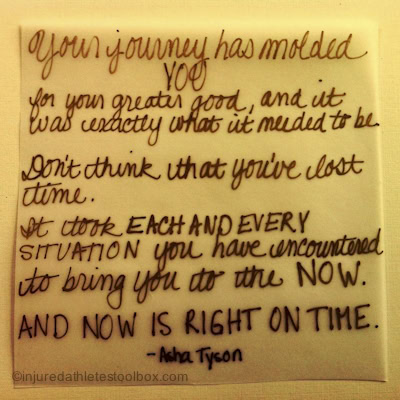 Your journey has molded
YOU
for your greater good, and it
was exactly what it needed to be.
Don't think that you've lost
time.
It took EACH AND EVERY
SITUATION you have encountered
to bring you to the NOW.
AND NOW IS RIGHT ON TIME.
-Asha Tyson
©injuredathletestoolbox.com